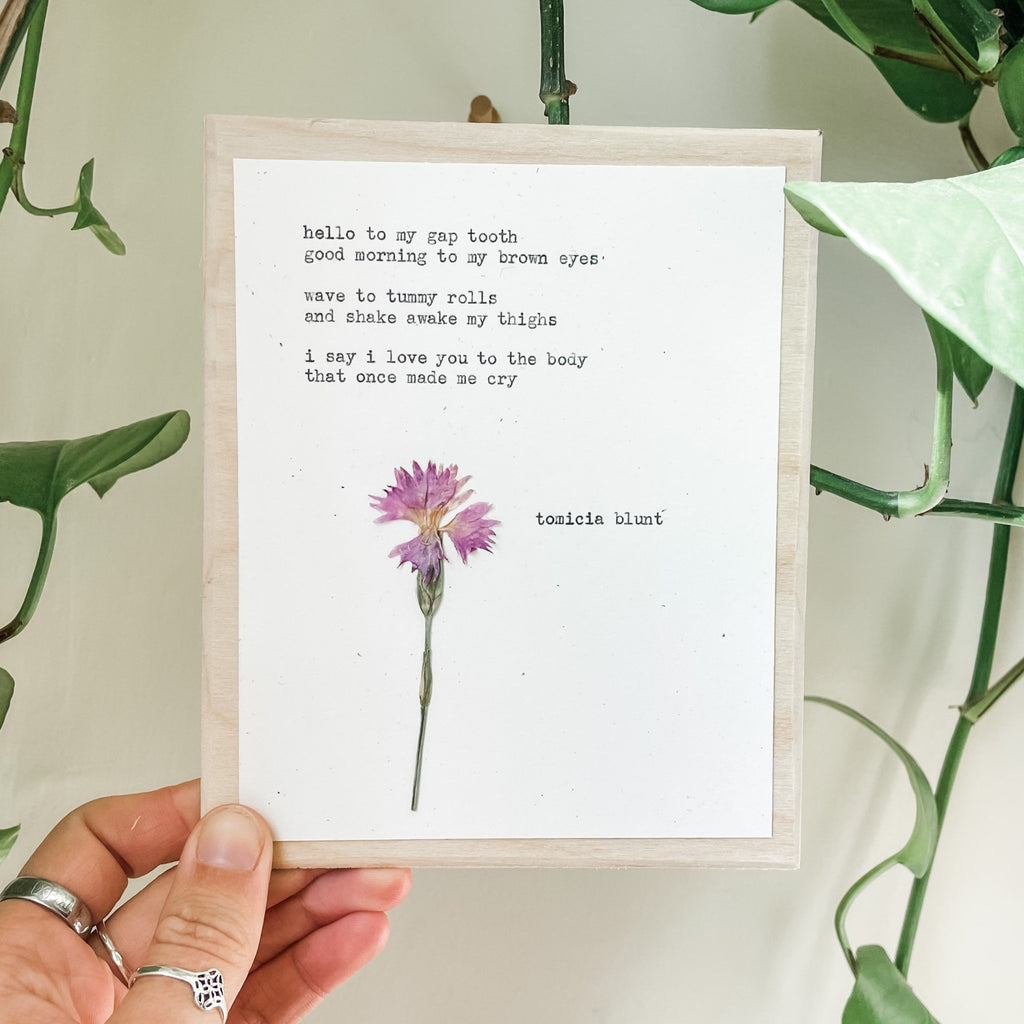 hello to my gap tooth
good morning to my brown eyes
wave to tummy rolls
and shake awake my thighs
i say i love you to the body
that once made me cry
tomicia blunt